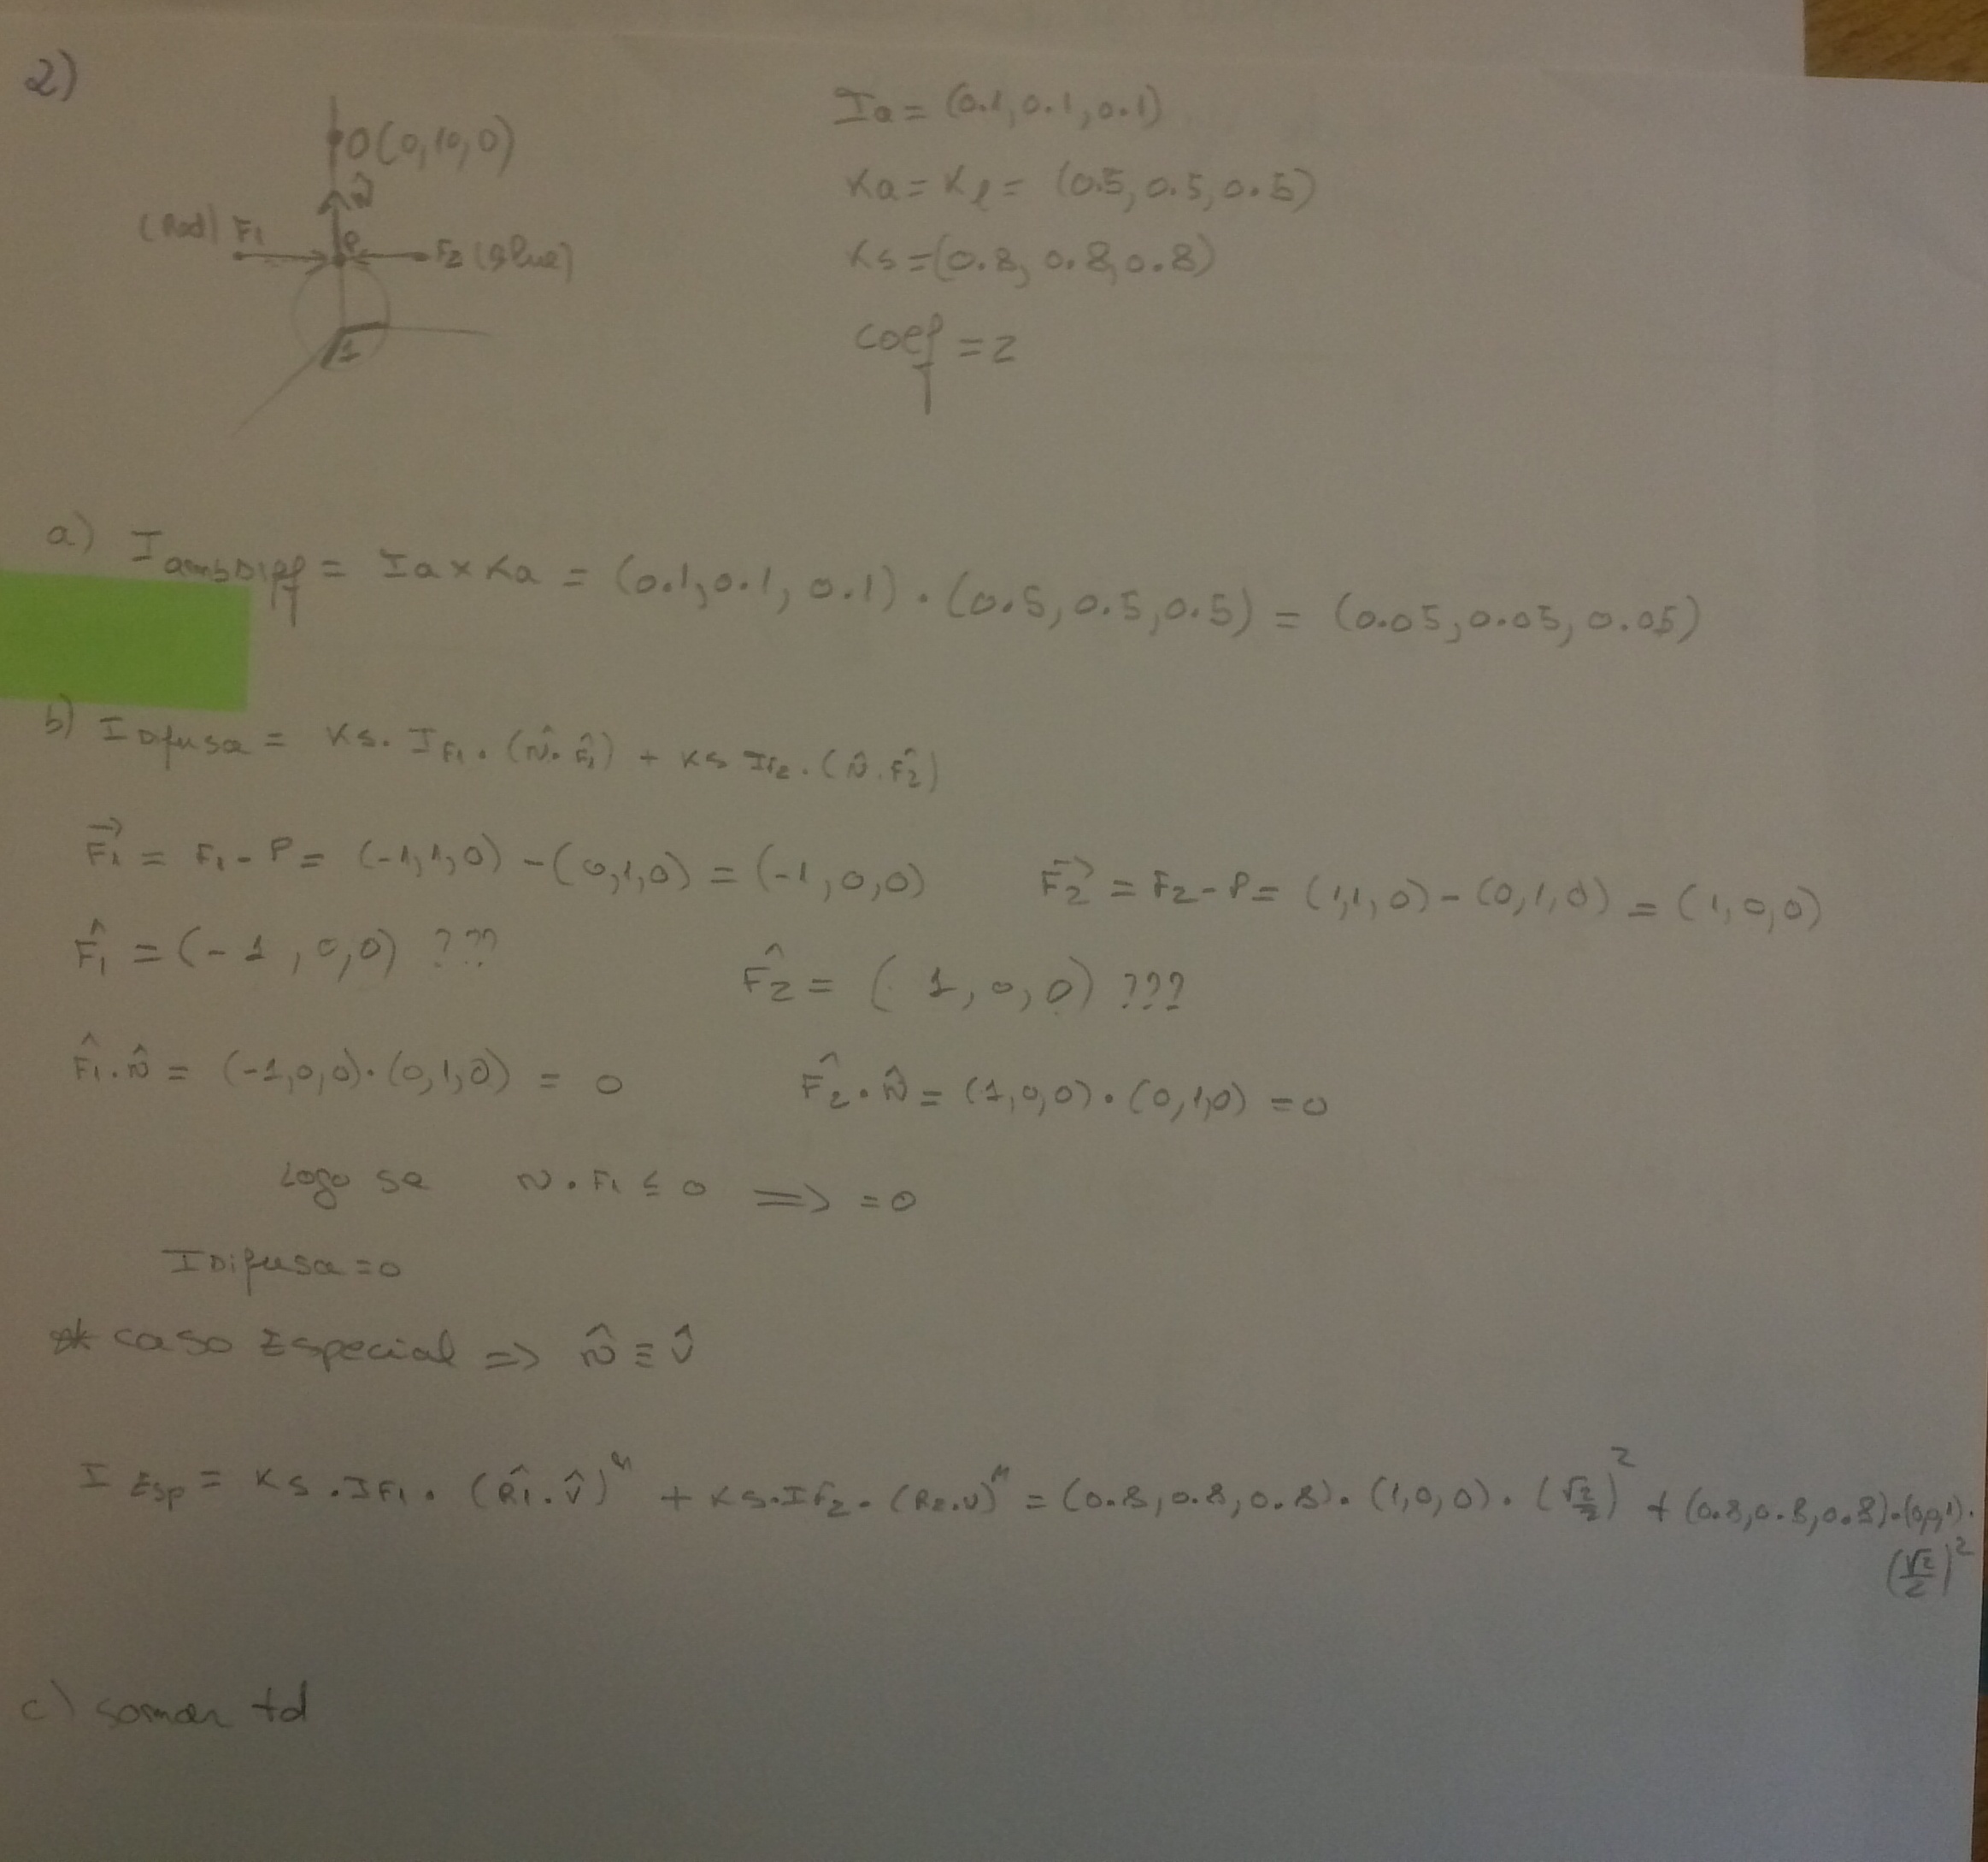 2)
O(0,10,0)
N̂
(Red) F1
P
F2 (Blue)
1
Ia = (0.1, 0.1, 0.1)
Ka = Kl = (0.5, 0.5, 0.5)
Ks = (0.8, 0.8, 0.8)
coef = 2
a) I ambDiff = Ia x Ka = (0.1, 0.1, 0.1) . (0.5, 0.5, 0.5) = (0.05, 0.05, 0.05)
b) I Difusa = Ks. IF1. (N̂. F̂1) + Ks IF2. (N̂. F̂2)
F⃗1 = F1 - P = (-1,1,0) - (0,1,0) = (-1,0,0)
F⃗2 = F2 - P = (1,1,0) - (0,1,0) = (1,0,0)
F̂1 = (-1,0,0) ???
F̂2 = (1,0,0) ???
F̂1. N̂ = (-1,0,0).(0,1,0) = 0
F̂2. N̂ = (1,0,0).(0,1,0) = 0
Logo se N.F1 ≤ 0 => =0
I Difusa = 0
* caso Especial => N̂ ≡ V̂
I Esp = Ks. IF1. (R̂1. V̂)ⁿ + Ks. IF2. (R2.V)ⁿ = (0.8, 0.8, 0.8). (1,0,0). (√2/2)² + (0.8,0.8,0.8).(0,0,1).
(√2/2)²
c) somar td